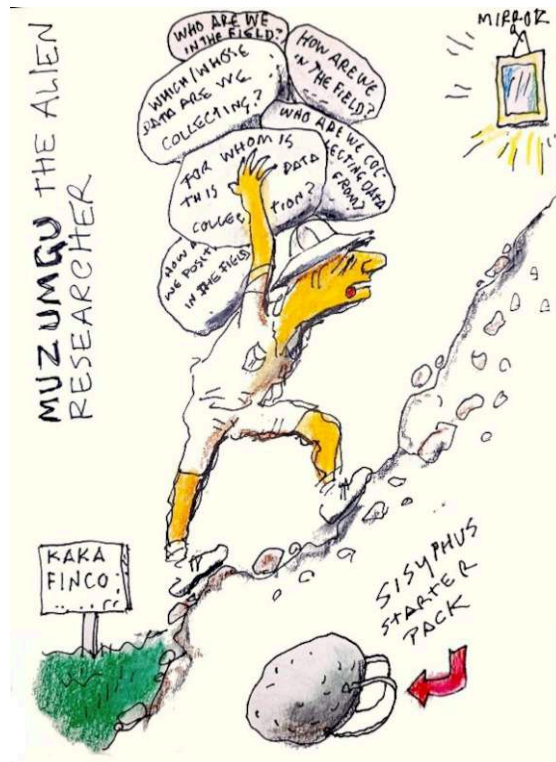 MUZUMGU THE ALIEN
RESEARCHER
WHO ARE WE
IN THE FIELD?
HOW ARE WE
IN THE FIELD?
WHICH/WHOSE
DATA ARE WE
COLLECTING?
WHO ARE WE COL-
LECTING DATA
FROM?
FOR WHOM IS
THIS DATA
COLLECTION?
HOW A
WE POSIT
IN THE FIELD
MIRROR
KAKA
FINCO
SISYPHUS
STARTER
PACK